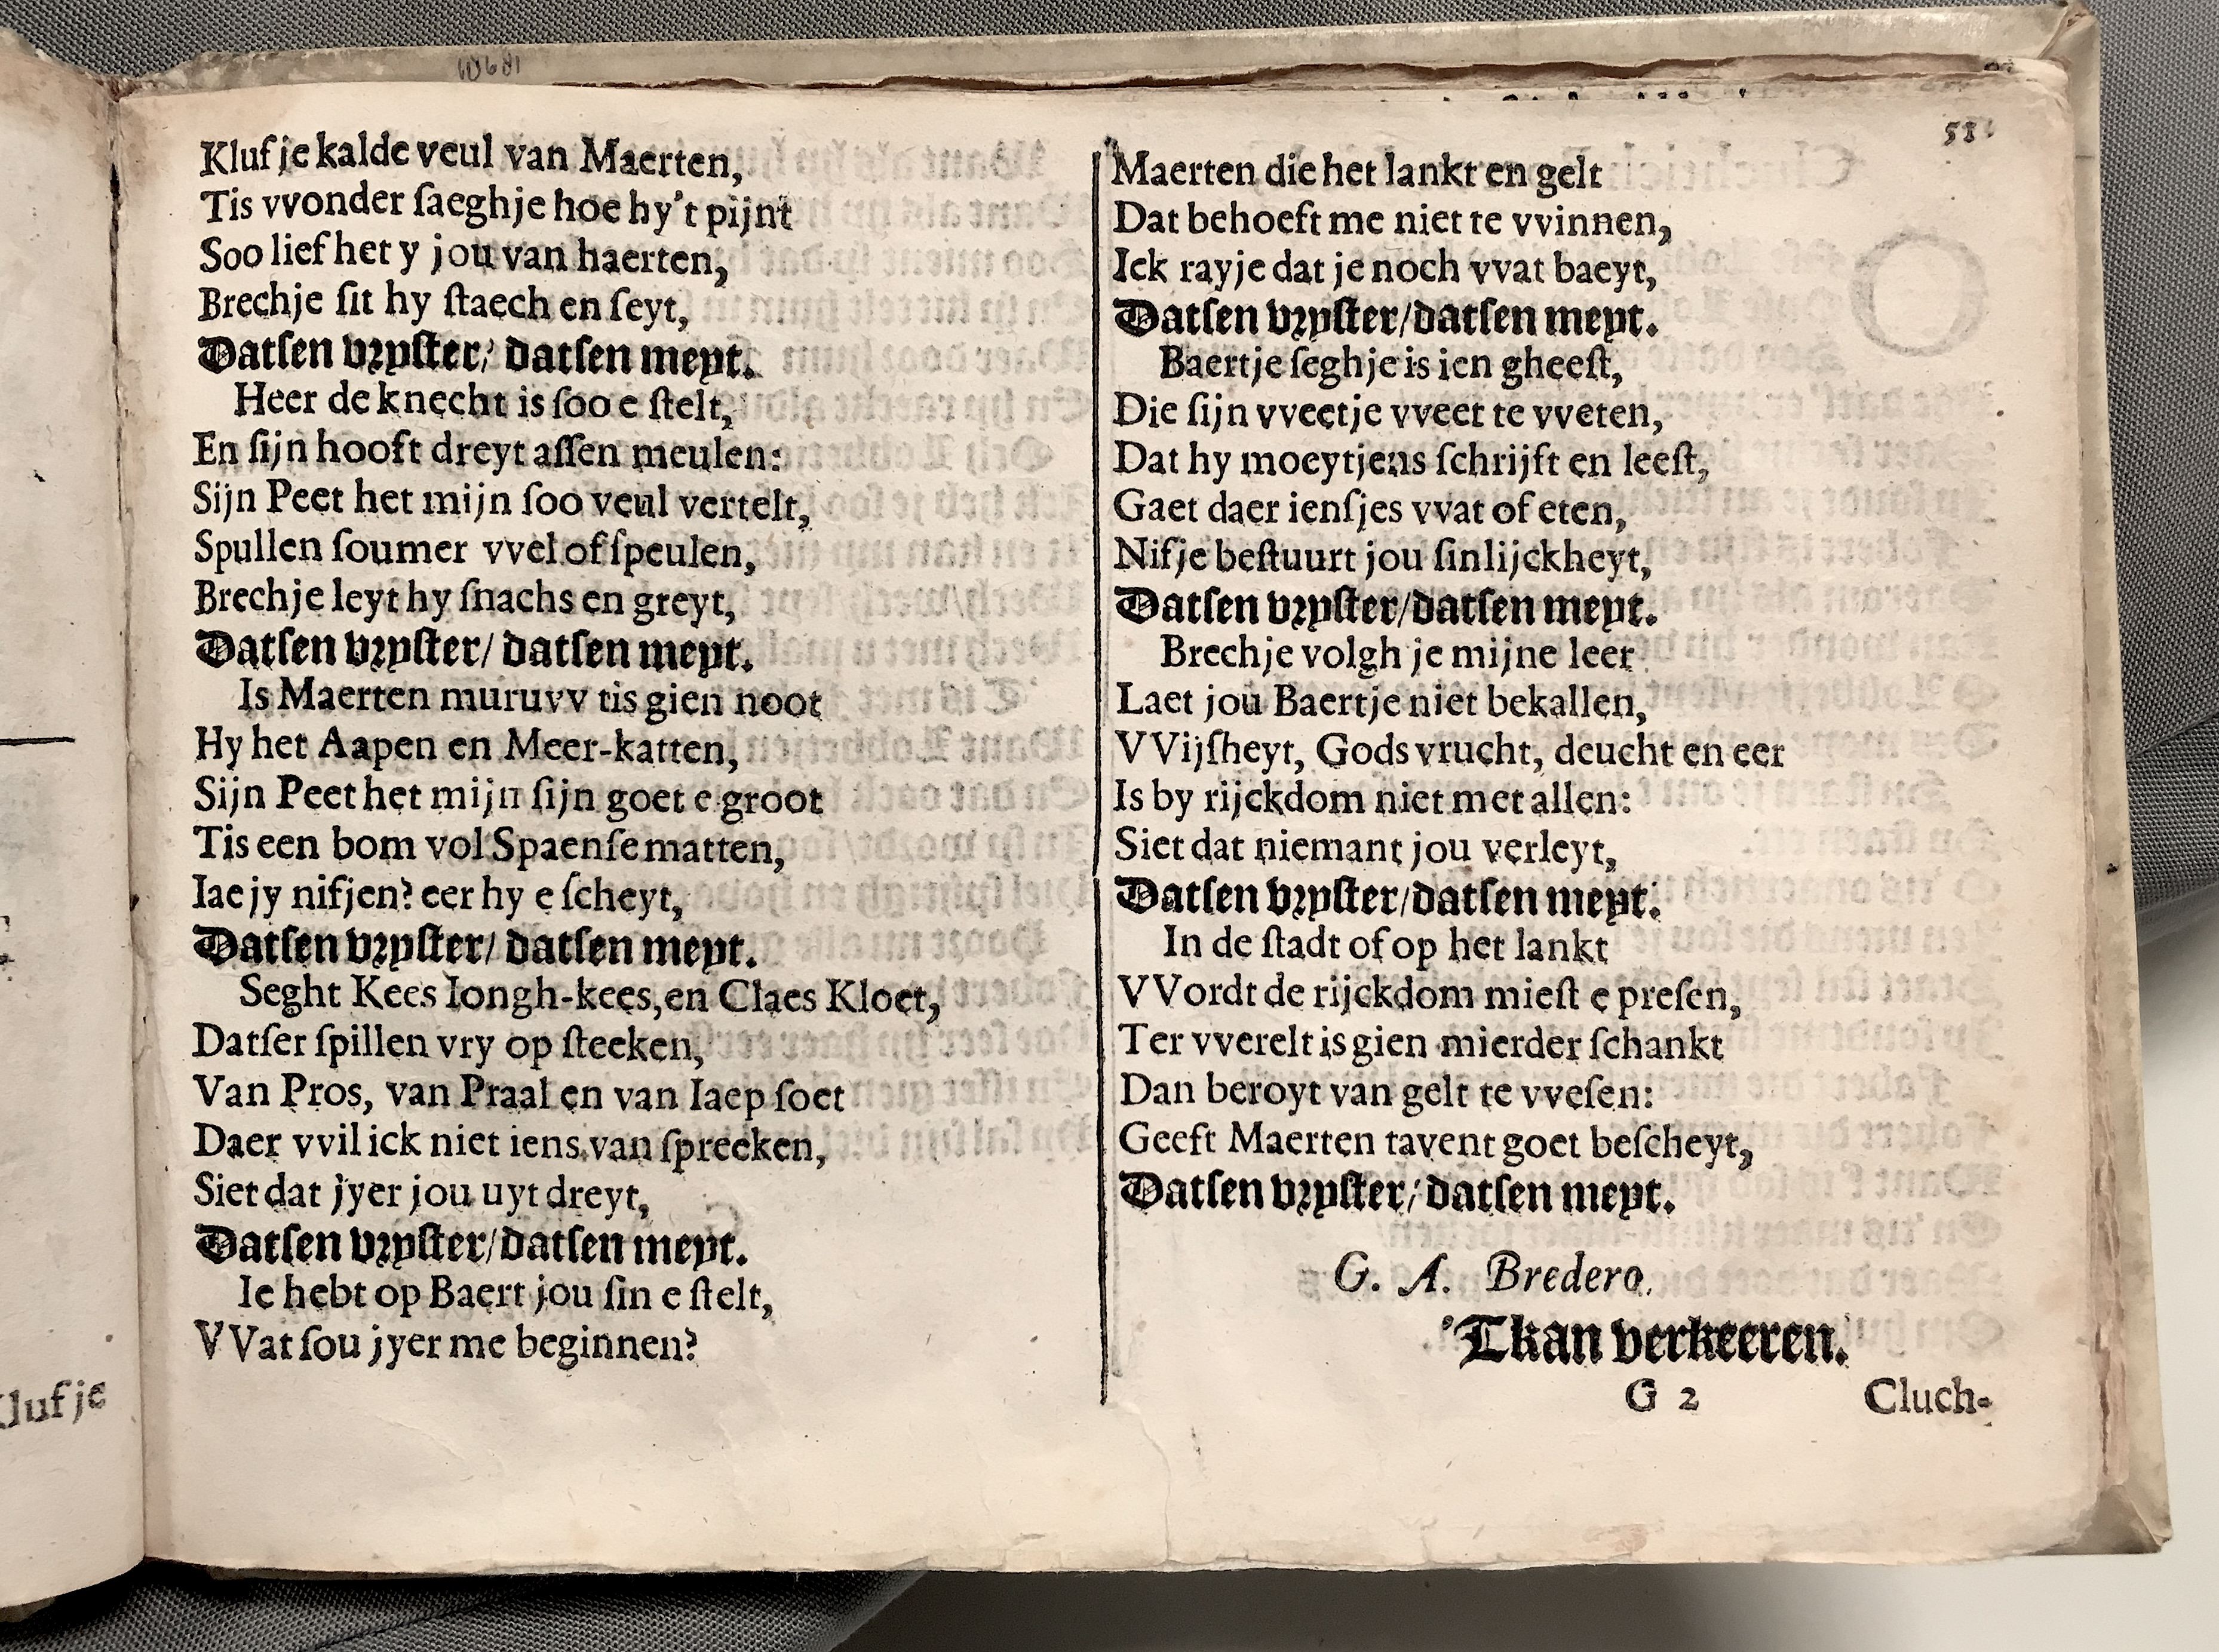 Klufje kalde veul van Maerten,
Tis vvonder ſaeghje hoe hy't pijnt
Soo lief het y jou van haerten,
Brechje ſit hy ſtaech en ſeyt,
Datſen vryſter/ datſen meyt.
Heer de knecht is ſoo e ſtelt,
En ſijn hooft dreyt aſſen meulen:
Sijn Peet het mijn ſoo veul vertelt,
Spullen ſoumer vvel of ſpeulen,
Brechje leyt hy ſnachs en greyt,
Datſen vryſter/ datſen meyt.
Is Maerten muruvv tis gien noot
Hy het Aapen en Meer-katten,
Sijn Peet het mijn ſijn goet e groot
Tis een bom vol Spaenſe matten,
Iae jy nifjen? eer hy e ſcheyt,
Datſen vryſter/ datſen meyt.
Seght Kees Iongh-kees, en Claes Kloet,
Datſer ſpillen vry op ſteeken,
Van Pros, van Praal en van Iaep ſoet
Daer vvil ick niet iens van ſpreeken,
Siet dat jyer jou uyt dreyt,
Datſen vryſter/datſen meyt.
Ie hebt op Baert jou ſin e ſtelt,
VVat ſou jyer me beginnen?
58
Maerten die het lankt en gelt
Dat behoeft me niet te vvinnen,
Ick rayje dat je noch vvat baeyt,
Datſen vryſter/datſen meyt.
Baertje ſeghje is ien gheeſt,
Die ſijn vveetje vveet te vveten,
Dat hy moeytjens ſchrijft en leeſt,
Gaet daer ienſjes vvat of eten,
Nifje beſtuurt jou ſinlijckheyt,
Datſen vryſter/datſen meyt.
Brechje volgh je mijne leer
Laet jou Baertje niet bekallen,
VVijſheyt, Gods vrucht, deucht en eer
Is by rijckdom niet met allen:
Siet dat niemant jou verleyt,
Datſen vryſter/datſen meyt.
In de ſtadt of op het lankt
VVordt de rijckdom mieſt e preſen,
Ter vverelt is gien mierder ſchankt
Dan beroyt van gelt te vveſen:
Geeft Maerten tavent goet beſcheyt,
Datſen vryſter/datſen meyt.
G. A. Bredero.
'Tkan verkeeren.
G 2 Cluch-
Klufje